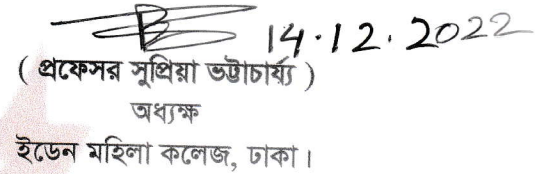 14.12.2022
( প্রফেসর সুপ্রিয়া ভট্টাচার্য্য )
অধ্যক্ষ
ইডেন মহিলা কলেজ, ঢাকা।